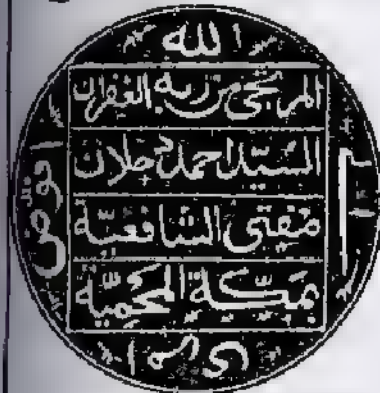 الله
المرتجي من ربه الغفران
السيد احمد دحلان
مفتى الشافعية
بمكة المحمية